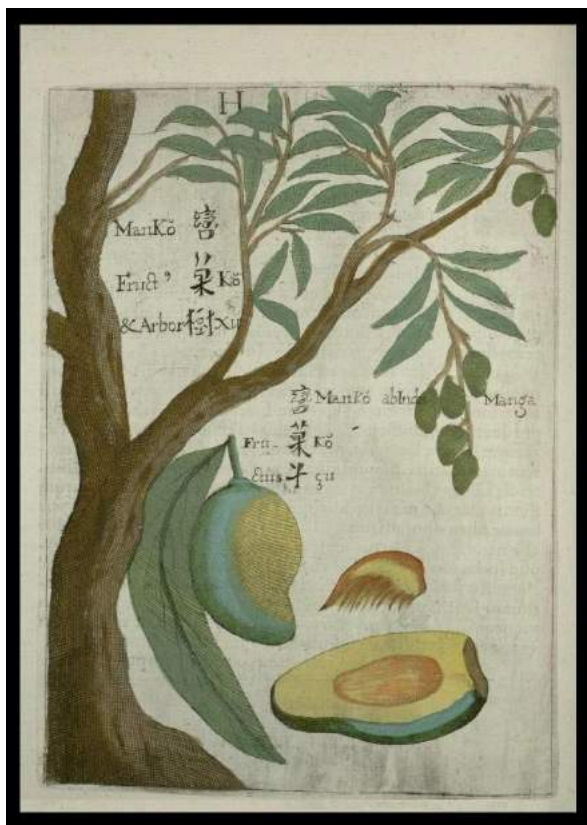 H
Mankõ
Fruct⁹ 菓 Kõ
& Arbor 樹 Xu
Mankó ab Indis Manga
Fru- 菓 Kõ
ctus çu